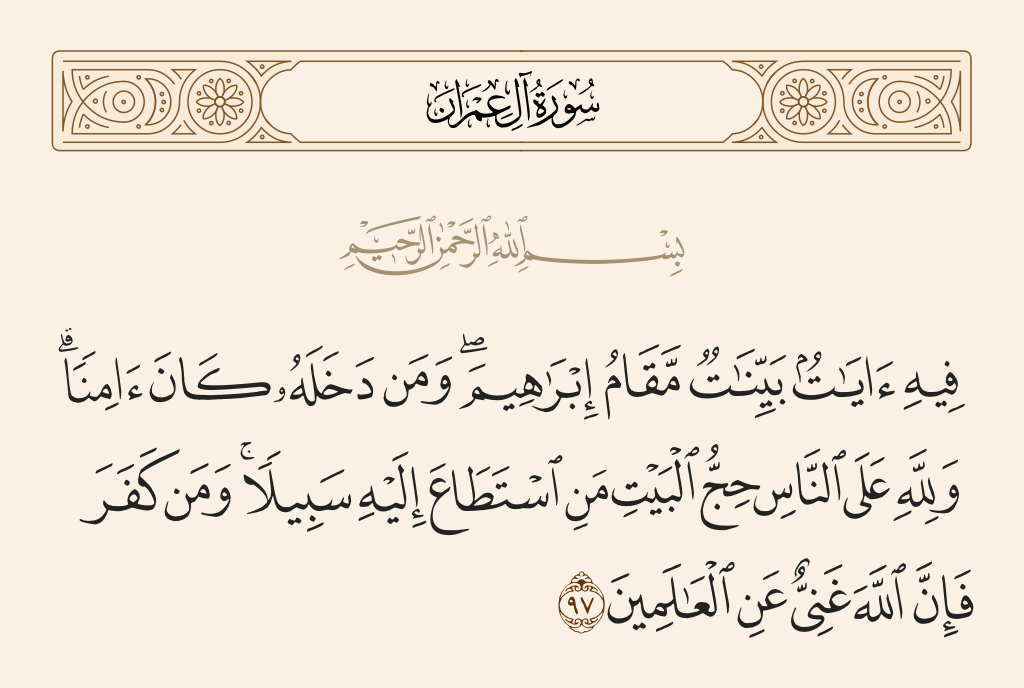 سُورَةُ آلِ عِمْرَانَ
بِسْمِ ٱللَّهِ ٱلرَّحْمَٰنِ ٱلرَّحِيمِ
فِيهِ ءَايَٰتُۢ بَيِّنَٰتٌ مَّقَامُ إِبْرَٰهِيمَ ۖ وَمَن دَخَلَهُۥ كَانَ ءَامِنًا ۗ
وَلِلَّهِ عَلَى ٱلنَّاسِ حِجُّ ٱلْبَيْتِ مَنِ ٱسْتَطَاعَ إِلَيْهِ سَبِيلًا ۚ وَمَن كَفَرَ
فَإِنَّ ٱللَّهَ غَنِىٌّ عَنِ ٱلْعَٰلَمِينَ ٩٧